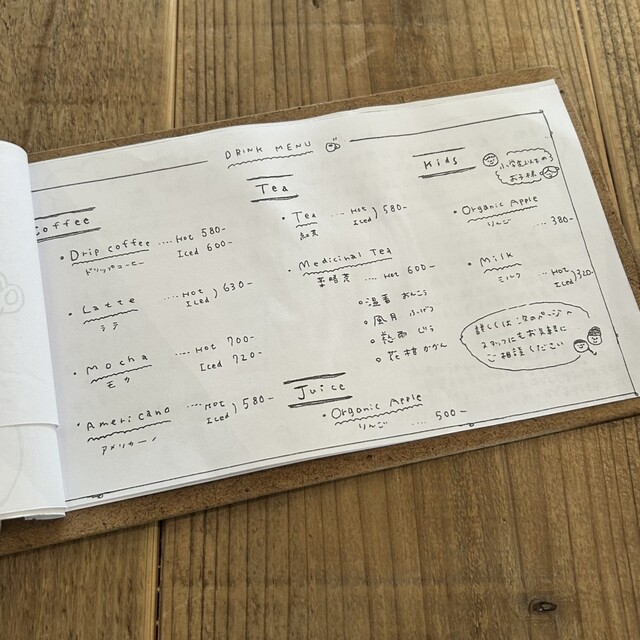 DRINK MENU
Coffee
Drip coffee .... Hot 580-
Iced 600-
ドリップコーヒー
Latte .... Hot
Iced ) 630-
ラテ
Mocha .... Hot 700-
Iced 720-
モカ
Americano .... Hot
Iced ) 580-
アメリカーノ
Tea
Tea .... Hot
Iced ) 580-
紅茶
Medicinal Tea
.... Hot 600-
温香 おんこう
風月 ふげつ
花柑 かかん
Juice
Organic Apple
りんご .... 500-
Kids
小学生以下の
お子様
Organic Apple
りんご .... 380-
Milk
ミルク .... Hot
Iced ) 320-
詳しくは次のページへ
スタッフにもお気軽に
ご相談ください